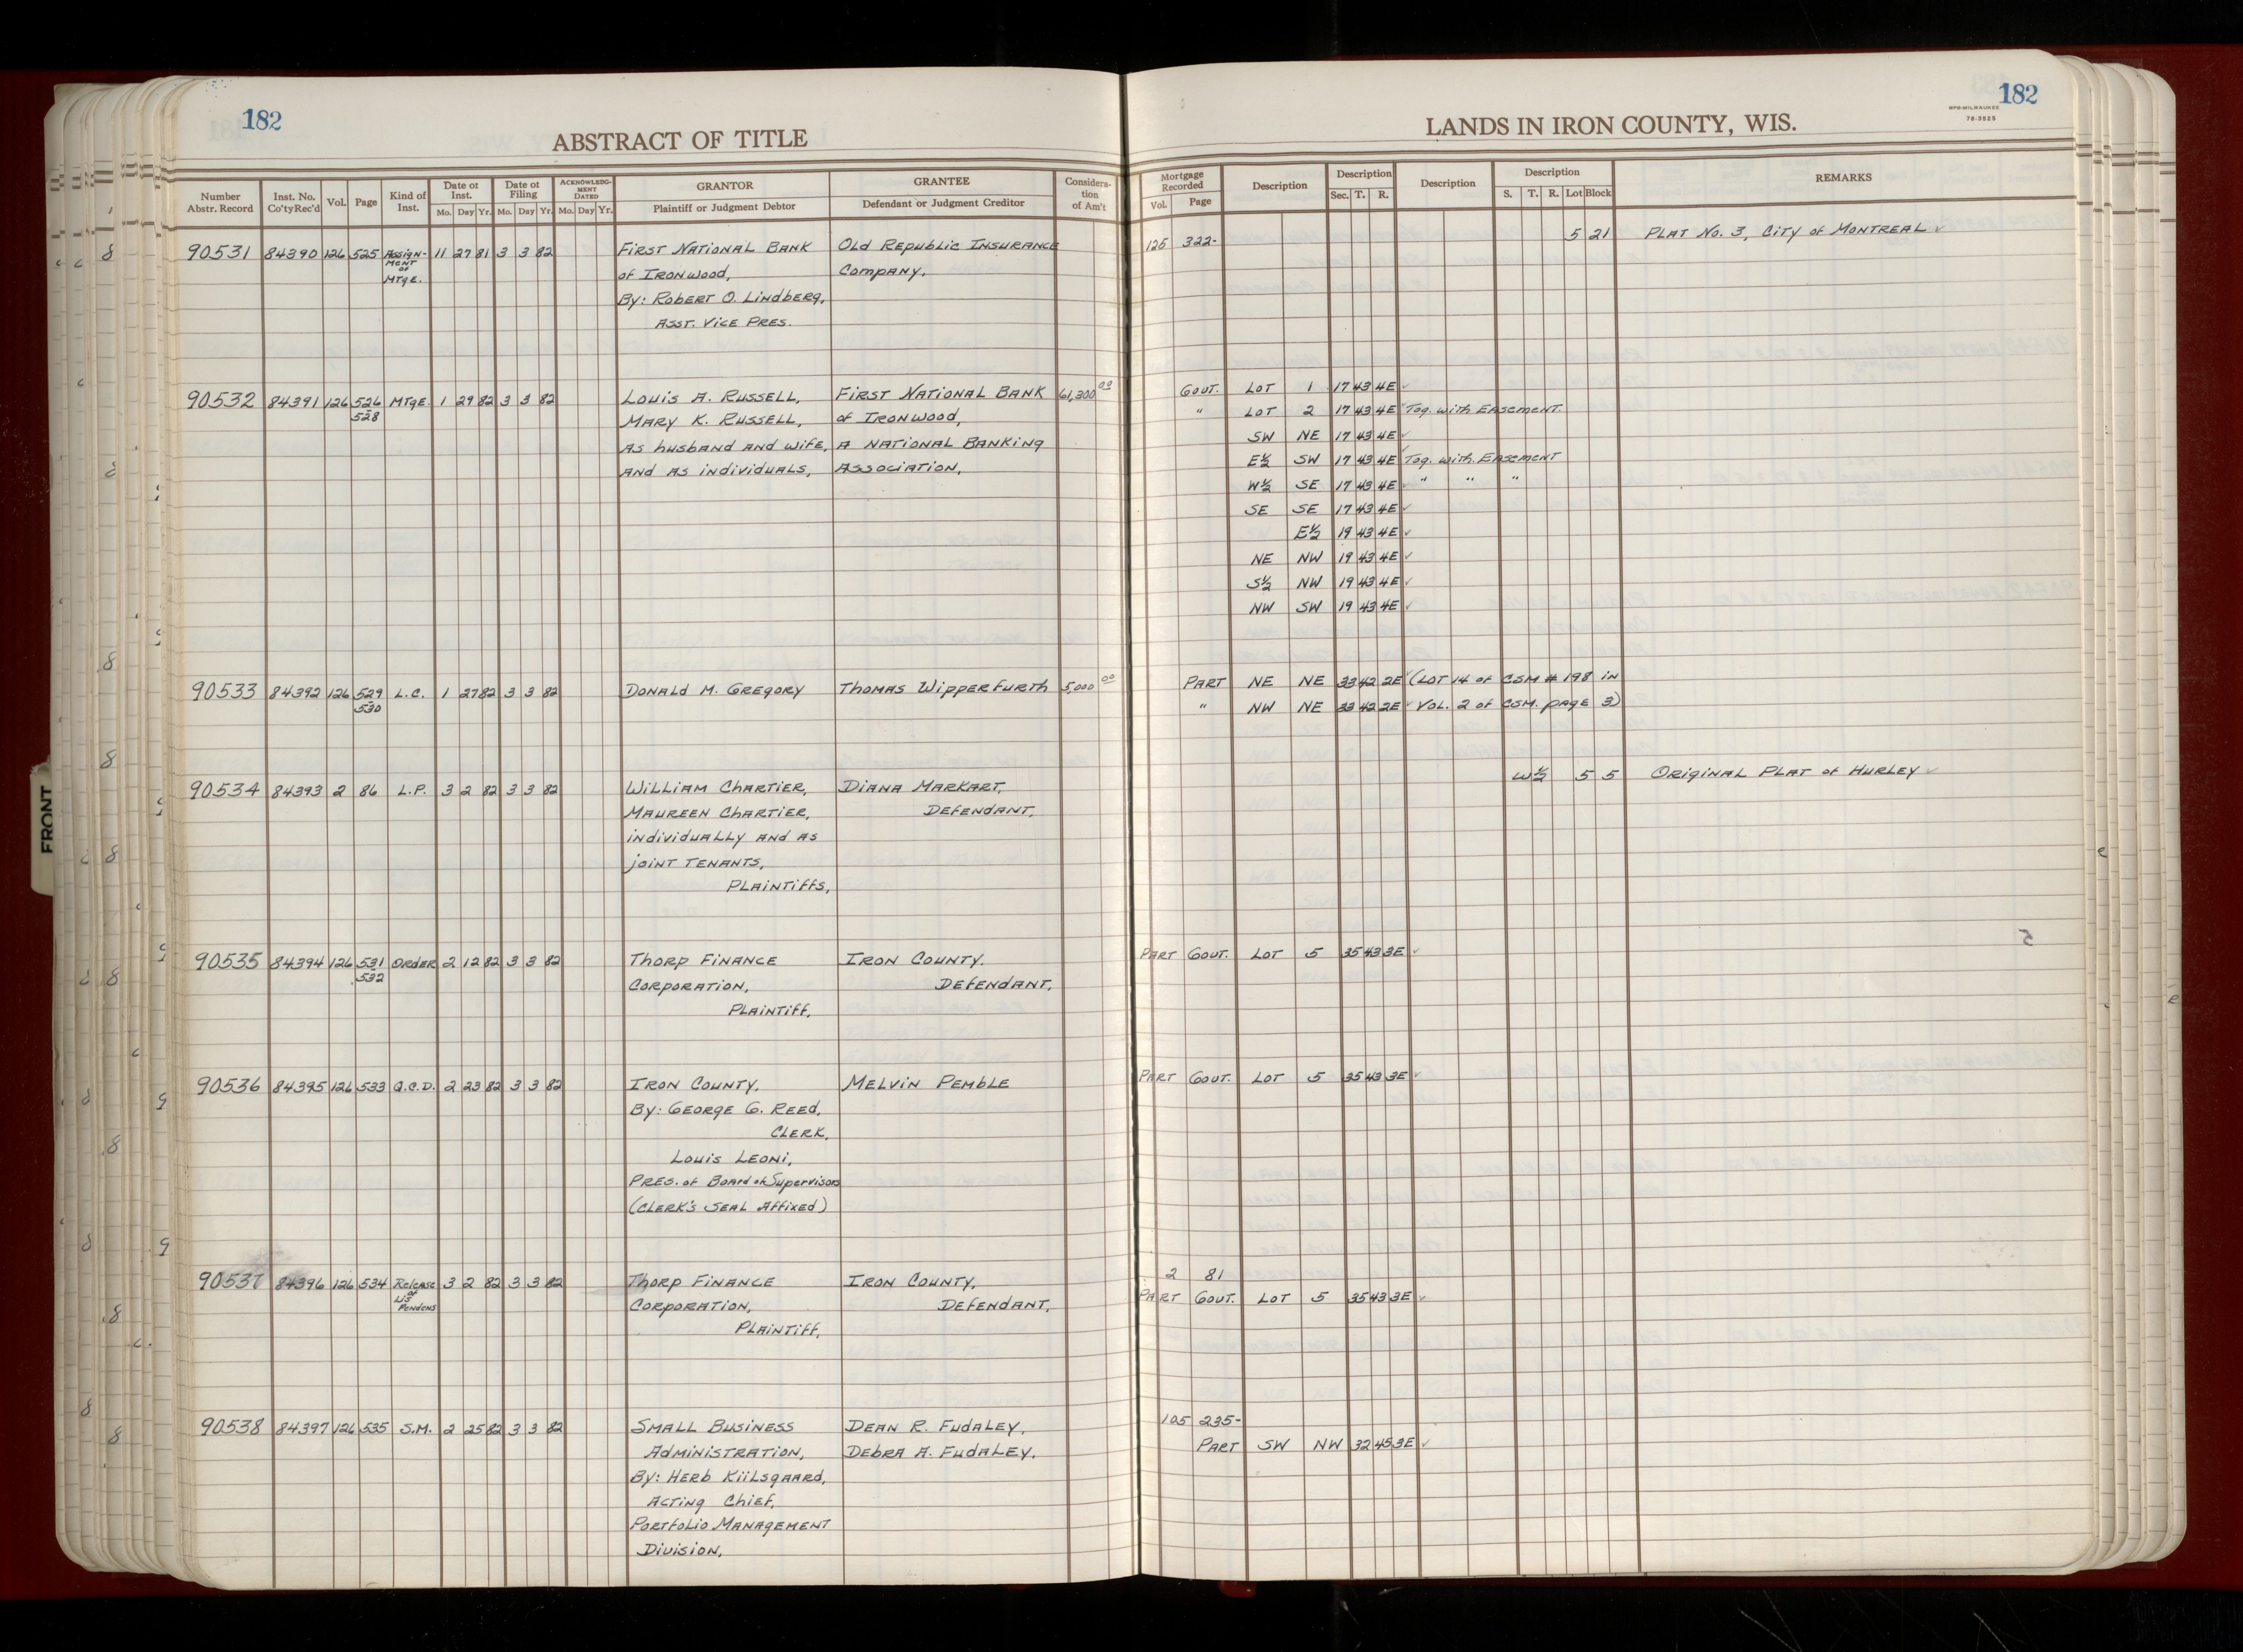 182
ABSTRACT OF TITLE
Number Abstr. Record | Inst. No. Co'ty Rec'd | Vol. | Page | Kind of Inst. | Date of Inst. Mo. Day Yr. | Date of Filing Mo. Day Yr. | ACKNOWLEDGMENT DATED Mo. Day Yr. | GRANTOR Plaintiff or Judgment Debtor | GRANTEE Defendant or Judgment Creditor | Consideration of Am't
90531 84390 126 525 Assign- 11 27 81 3 3 82 First National Bank Old Republic Insurance
ment of Ironwood, Company,
of By: Robert O. Lindberg,
Mtge. Asst. Vice Pres.
90532 84391 126 526 Mtge. 1 29 82 3 3 82 Louis A. Russell, First National Bank 61,300 00
528 Mary K. Russell, of Ironwood,
as husband and wife, a National Banking
and as individuals, Association,
90533 84392 126 529 L.C. 1 27 82 3 3 82 Donald M. Gregory Thomas Wipperfurth 5,000 00
530
90534 84393 2 86 L.P. 3 2 82 3 3 82 William Chartier, Diana Markart,
Maureen Chartier, Defendant,
individually and as
joint tenants,
Plaintiffs,
90535 84394 126 531 Order 2 12 82 3 3 82 Thorp Finance Iron County,
532 Corporation, Defendant,
Plaintiff,
90536 84395 126 533 Q.C.D. 2 23 82 3 3 82 Iron County, Melvin Pemble
By: George G. Reed,
Clerk,
Louis Leoni,
Pres. of Board of Supervisors
(Clerk's Seal Affixed)
90537 84396 126 534 Release 3 2 82 3 3 82 Thorp Finance Iron County,
of Corporation, Defendant,
Lis Plaintiff,
Pendens
90538 84397 126 535 S.M. 2 25 82 3 3 82 Small Business Dean R. Fudaley,
Administration, Debra A. Fudaley,
By: Herb Kiilsgaard,
Acting Chief,
Portfolio Management
Division,
FRONT
182
LANDS IN IRON COUNTY, WIS.
WPB-MILWAUKEE
78-3525
Mortgage Recorded Vol. Page | Description | Description Sec. T. R. | Description | Description S. T. R. Lot Block | REMARKS
125 322- 5 21 Plat No. 3, City of Montreal ✓
Gout. Lot 1 17 43 4E ✓
" Lot 2 17 43 4E ✓ Tog. with Easement.
SW NE 17 43 4E ✓
E½ SW 17 43 4E ✓ Tog. with Easement
W½ SE 17 43 4E ✓ " " "
SE SE 17 43 4E ✓
E½ 19 43 4E ✓
NE NW 19 43 4E ✓
S½ NW 19 43 4E ✓
NW SW 19 43 4E ✓
Part NE NE 33 42 2E ✓ (Lot 14 of CSM # 198 in
" NW NE 33 42 2E ✓ Vol. 2 of CSM. page 3)
W½ 5 5 Original Plat of Hurley ✓
Part Gout. Lot 5 35 43 3E ✓
Part Gout. Lot 5 35 43 3E ✓
2 81
Part Gout. Lot 5 35 43 3E ✓
105 235-
Part SW NW 32 45 3E ✓